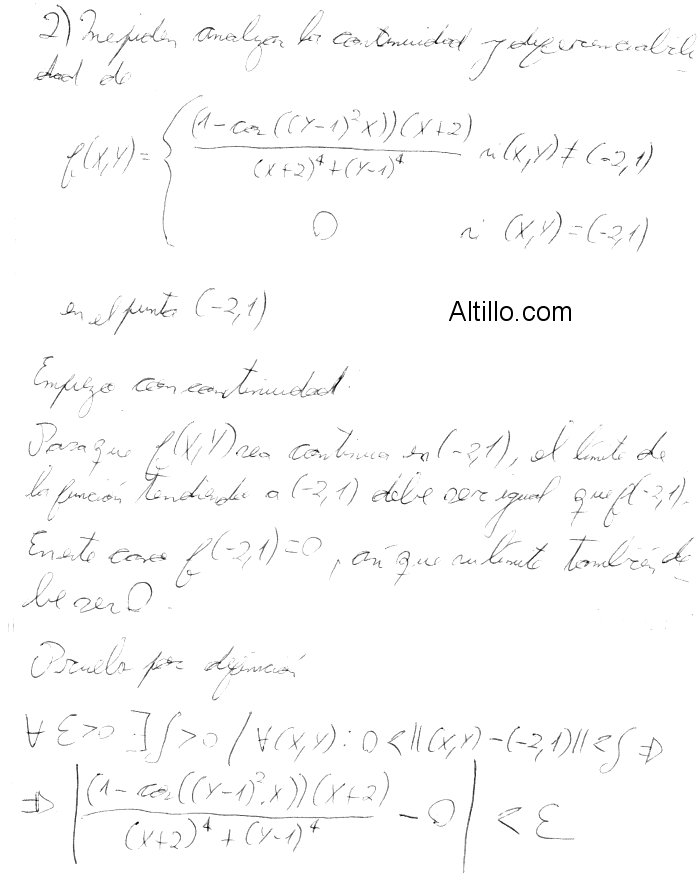 2) Me piden analizar la continuidad y diferenciabili
dad de
f(X,Y) = { (1-cos((Y-1)²X))(X+2) / (X+2)⁴+(Y-1)⁴ si (X,Y) ≠ (-2,1)
0 si (X,Y) = (-2,1)
en el punto (-2,1)
Altillo.com
Empiezo con continuidad.
Para que f(X,Y) sea continua en (-2,1), el límite de
la función tendiendo a (-2,1) debe ser igual que f(-2,1).
En este caso f(-2,1)=0, así que su límite también de
be ser 0.
Pruebo por definición
∀ ε>0 ∃ δ>0 / ∀(X,Y): 0<||(X,Y)-(-2,1)||<δ ⇒
⇒ | (1-cos((Y-1)².X))(X+2) / (X+2)⁴+(Y-1)⁴ - 0 | < ε